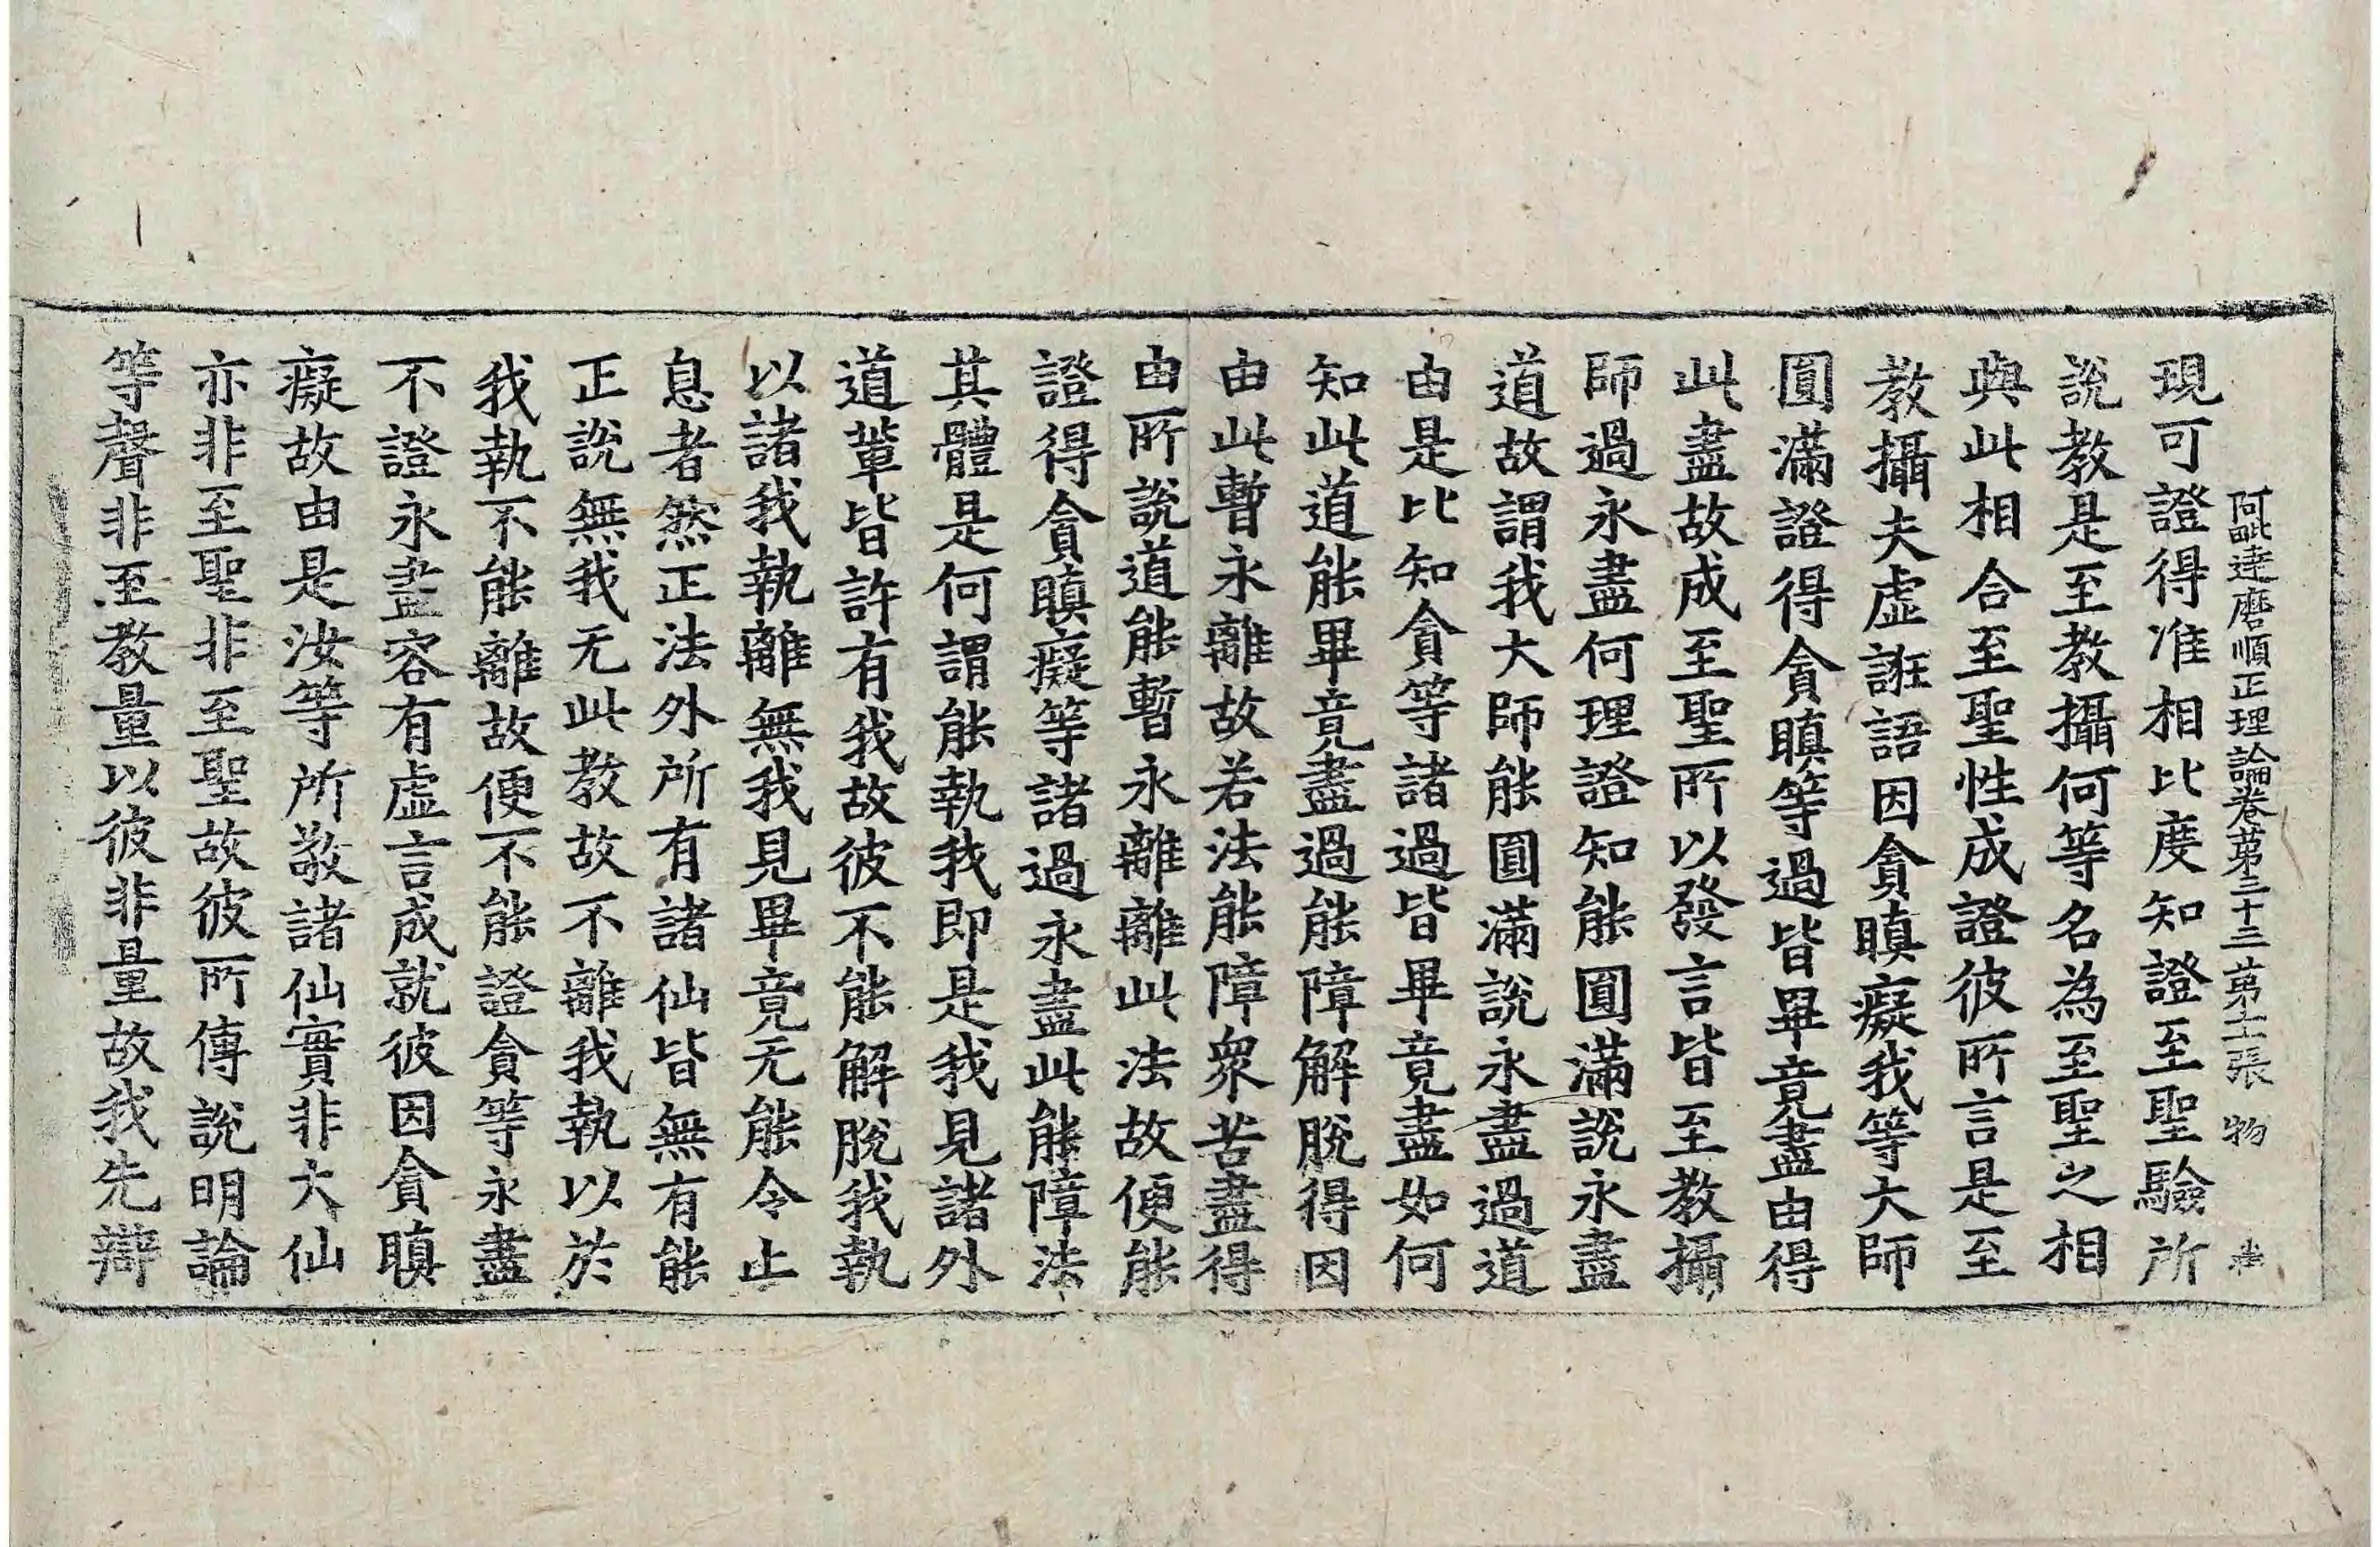 阿毗達磨順正理論卷第三十三第十一張 物
現可證得准相比度知證至聖驗所
說教是至教攝何等名為至聖之相
與此相合至聖性成證彼所言是至
教攝夫虛誑語因貪瞋癡我等大師
圓滿證得貪瞋等過皆畢竟盡由得
此盡故成至聖所以發言皆至教攝
師過永盡何理證知能圓滿說永盡
道故謂我大師能圓滿說永盡過道
由是比知貪等諸過皆畢竟盡如何
知此道能畢竟盡過能障解脫得因
由此暫永離故若法能障眾苦盡得
由所說道能暫永離離此法故便能
證得貪瞋癡等諸過永盡此能障法
其體是何謂能執我即是我見諸外
道輩皆許有我故彼不能解脫我執
以諸我執離無我見畢竟无能令止
息者然正法外所有諸仙皆無有能
正說無我无此教故不離我執以於
我執不能離故便不能證貪等永盡
不證永盡容有虛言成就彼因貪瞋
癡故由是汝等所敬諸仙實非大仙
亦非至聖非至聖故彼所傳說明論
等聲非至教量以彼非量故我先辯